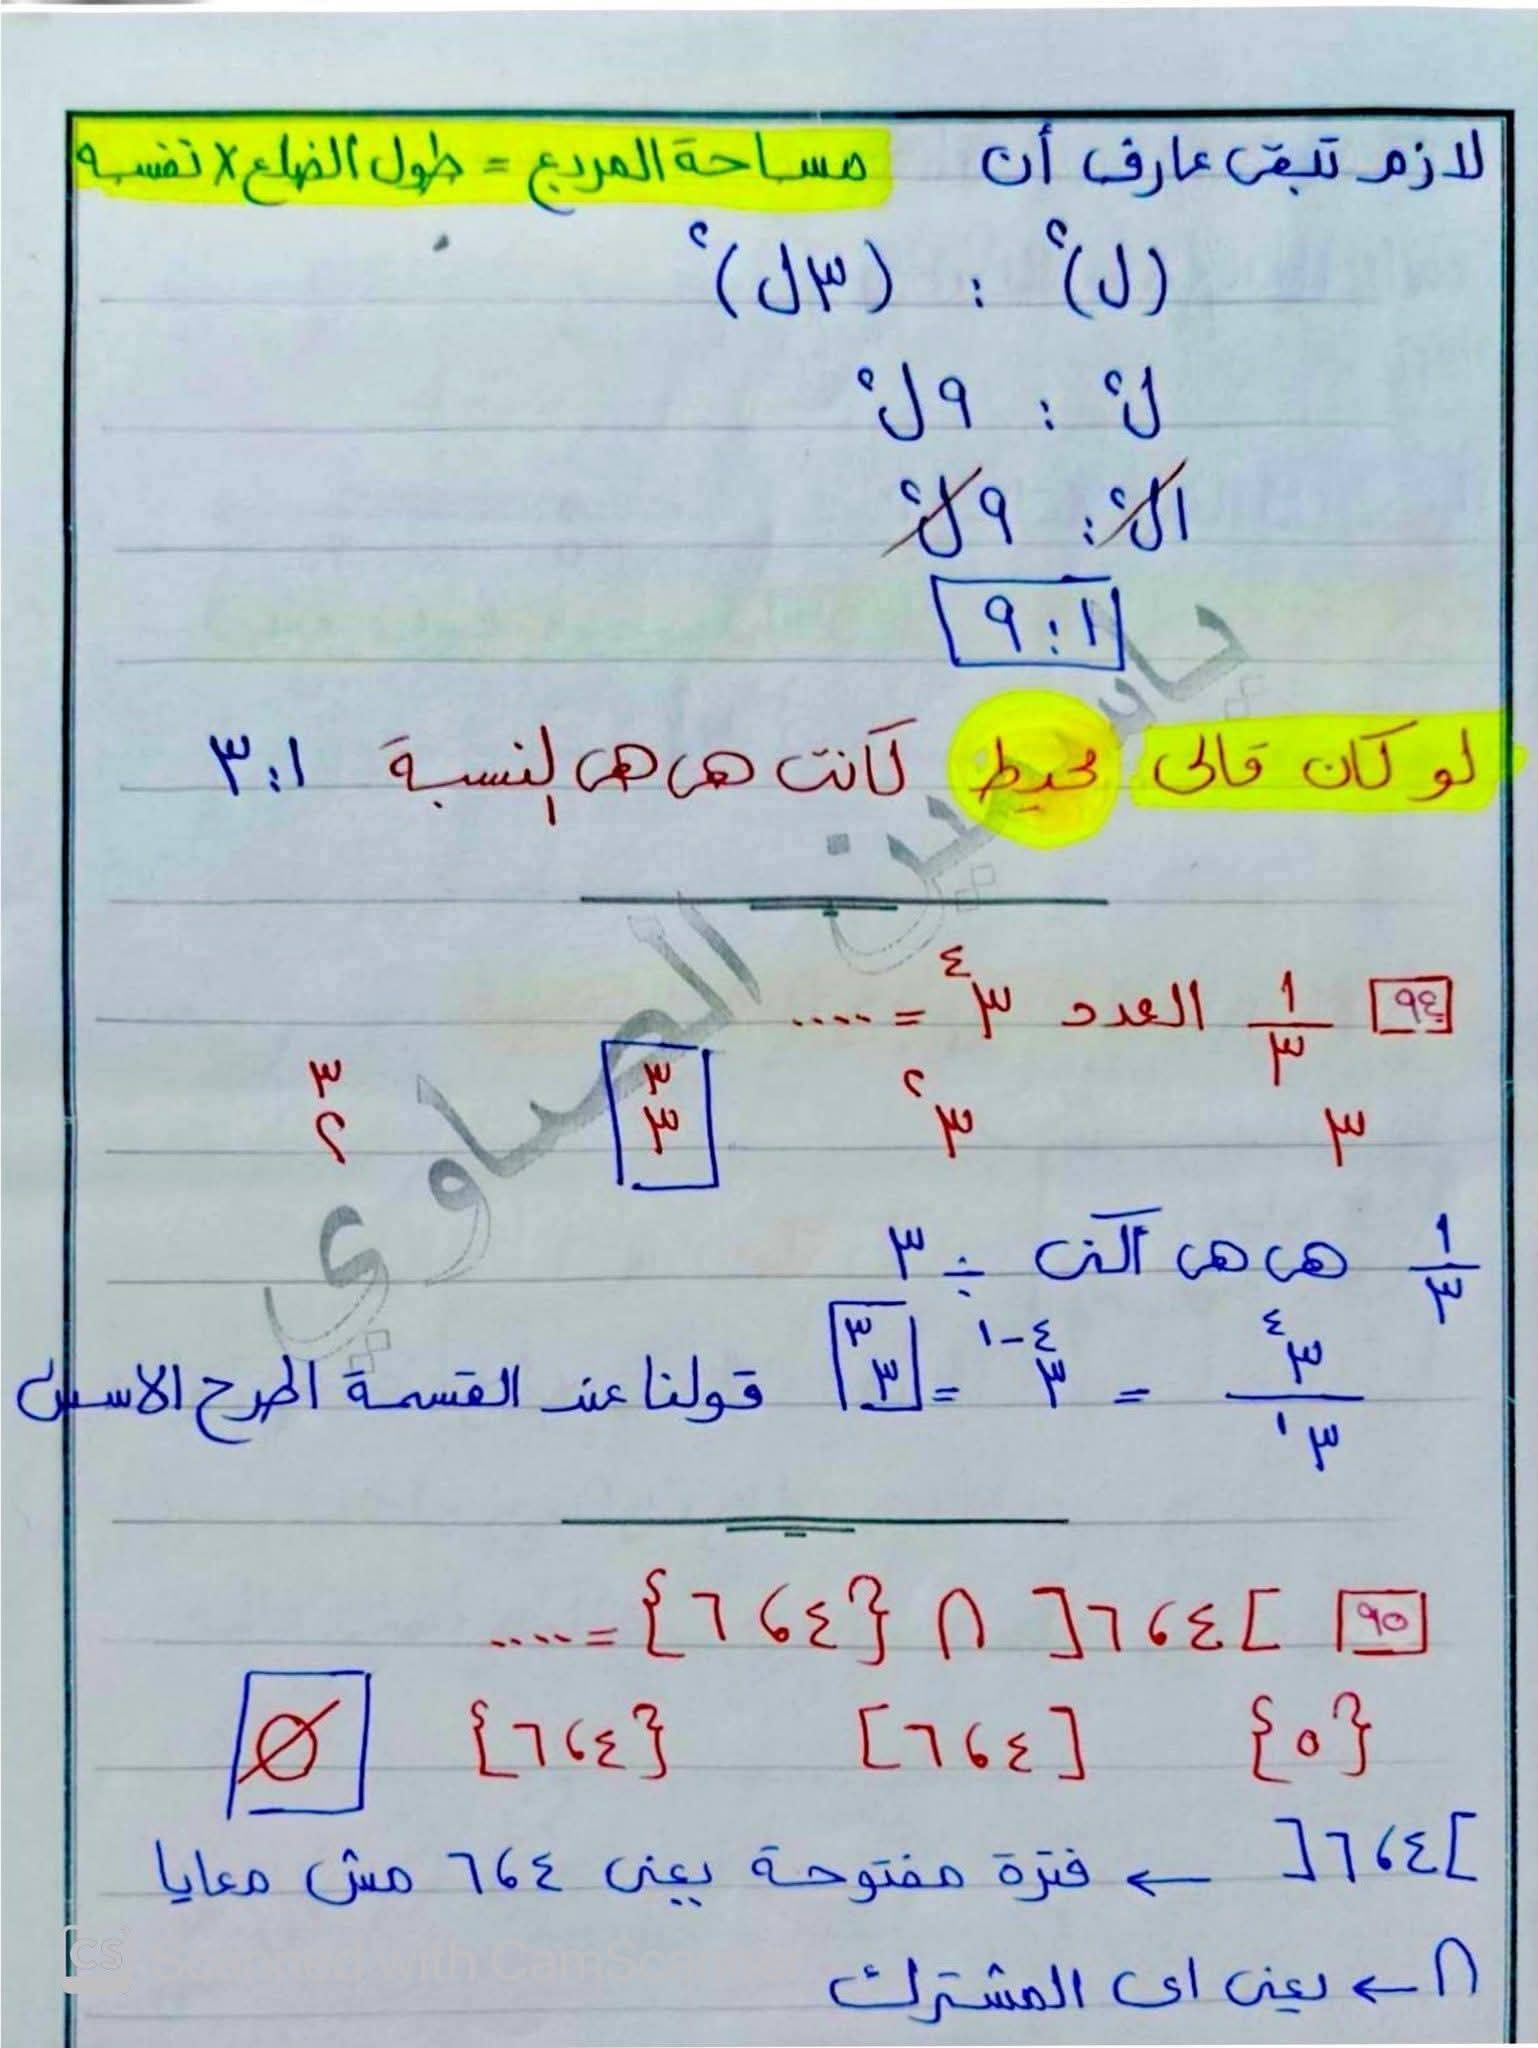 لازم تبقى عارف أن مساحة المربع = طول الضلع × نفسه
(ل)² : (٣ل)²
ل² : ٩ل²
١ل² : ٩ل²
١ : ٩
لو كان قالى محيط كانت هى هى النسبة ١ : ٣
٩٤ ١/٣ العدد ٣⁴ = ....
٣ ٣² ٣³ ٢³
١/٣ هى هى اكنى ÷ ٣
٣⁴/٣¹ = ٣⁴⁻¹ = ٣³ قولنا عند القسمة اطرح الاسس
٩٥ ]٤،٦[ ∩ {٤،٦} = ....
{٥} [٤،٦] {٤،٦} ∅
]٤،٦[ ← فترة مفتوحة يعنى ٤،٦ مش معايا
∩ ← يعنى اى المشترك
ياسمين الصاوي
CS Scanned with CamSc